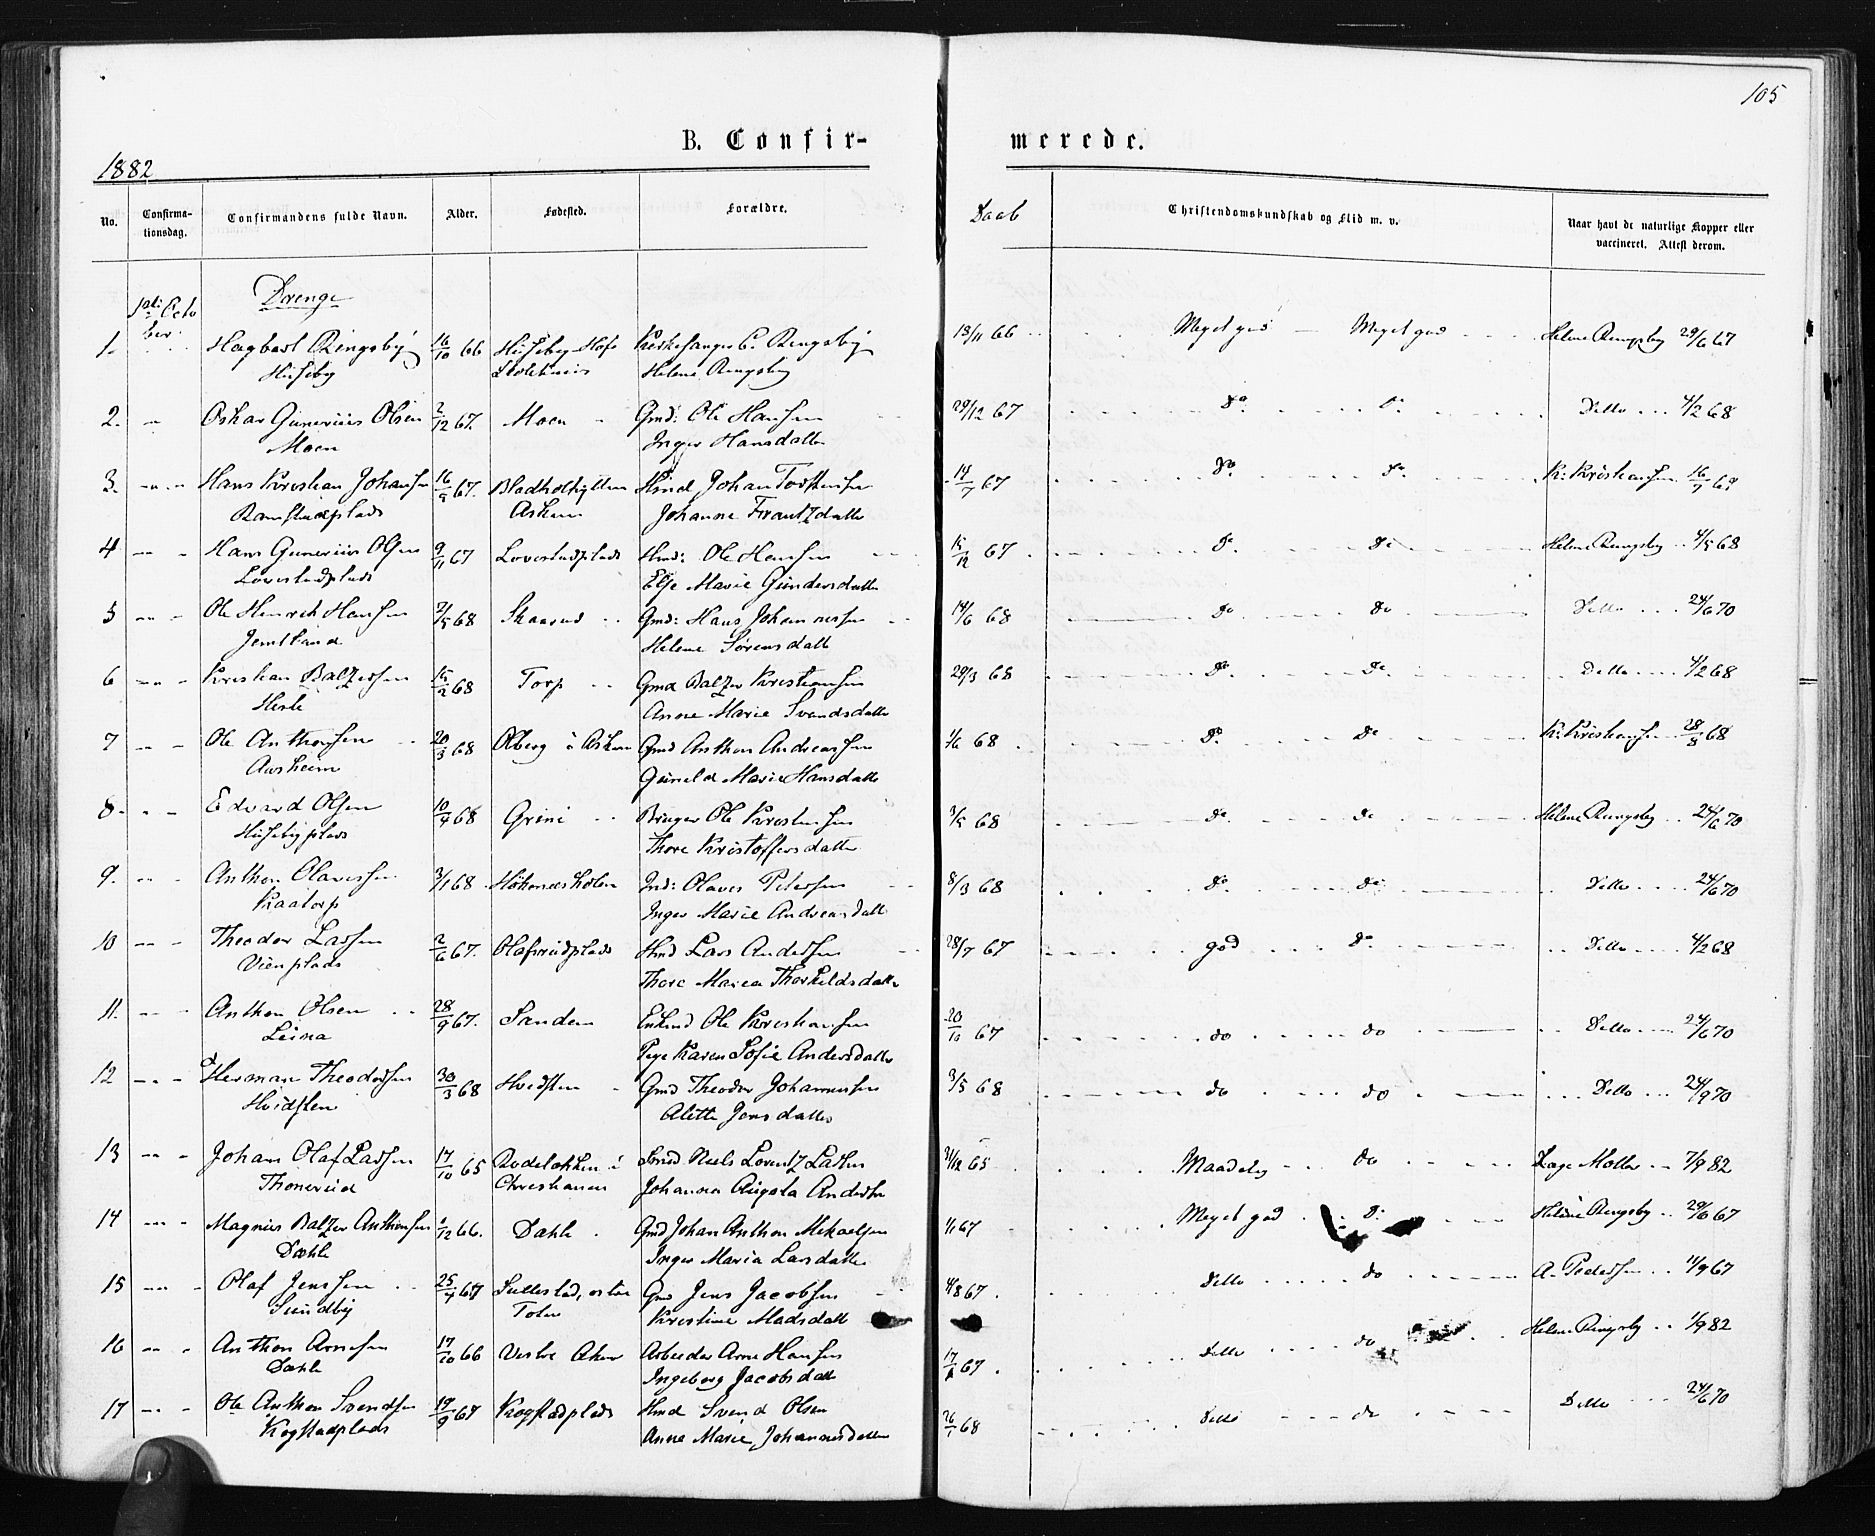 105
B. Confir-
merede.
1882
No. Confirma-tionsdag. Confirmandens fulde Navn. Alder. Fødested. Forældre. Daab Christendomskundskab og Flid m. v. Naar havt de naturlige Kopper eller vaccineret. Attest derom.
1ste Octo ber Drenge
1. Hagbart Ringsby 16/10 66 Huseby Hofs Kirkesanger C. Ringsby 18/11 66 Meget god Meget god Helene Ringsby 29/6 67
Huseby Helene Ringsby
2. Oskar Gunerius Olsen 2/12 67. Moen Gmd: Ole Hansen 29/12 67 do. do. Ditto 4/2 68
Moen Inger Hansdatter
3. Hans Kristian Johansen 67. Hmd Johan Torstensen 14/7 67 do. do. K: Kristiansen
Ramstadplads Askem Johanne Frantzdatter
4 Hans Gunerius Olsen 9/11 67 Lovestadplads Hmd: Ole Hansen 15/12 67 do. do Helene Ringsby 4/5 68
Lovestadplads Else Marie Gundersdatter
5 Ole Henrik Hansen 2/5 68 Skaarud Gmd: Hans Johannessen 14/6 68 do do Ditto 24/6 70
Jemtland Helene Sørensdatt
6 Kristian Baltzersen 15/2 68 Torp Gmd Baltzer Kristiansen 29/3 68 do. do Ditto 4/2 68
Anne Marie Svendsdatter
7 Ole Anthonsen 20/3 68 Olberg i Askem Gmd Anthon Andreassen 1/6 68 do. do K: Kristiansen 28/8 68
Aasheim Gunild Marie Hansdatter
8. Edvard Olsen 10/4 68 Grini Bruger Ole Kristensen 3/5 68 do. do Helene Ringsby 24/6 70
Husebyplads Thore Kristoffersdatter
9. Anthon Olavesen 3/1 68 Ind: Olaves Petersen 8/3 68 do do Ditto 24/6 70
Kaatorp Inger Marie Andreasdatt
10 Theodor Larsen 2/6 67. Olafsrudplads Hmd Lars Andersen 28/7 67 god do Ditto 4/2 68
Vienplads Thore Maria Thorkildsdatter
11. Anthon Olsen 28/9 67. Sanden Enkmd Ole Kristiansen 20/10 67 do do Ditto 24/6 70
Leina Pige Karen Sofie Andersdatter
12 Herman Theodorsen 30/3 68 Hvidsten Gmd Theodor Johannessen 3/5 68 do do Ditto 24/9 70
Hvidsten Alette Jensdatter
13 Johan Olaf Larsen 17/10 65 Rodeløkken i Smed Niels Lorentz Larsen 31/12 65 Maadelig do Lage Møller 7/9 82
Thonerud Christiania Johanna Augusta Anders
14 Magnus Baltzer Anthonsen 2/12 66. Dæhle Gmd Johan Anthon Mikaelsen 1/1 67 Meget god do Helene Ringsby 29/6 67
Dæhle Inger Maria Larsdatter
15 Olaf Jenssen 25/4 67 Sullestad, østre Gmd Jens Jacobsen 4/8 67. Ditto do A. Pedersen 11/9 67
Sundby Toten Kristine Madsdatt
16 Anthon Arnesen 17/10 66 Vestre Aker Arbeider Arne Hansen 67. Ditto do Helene Ringsby 1/9 82
Dæhle Ingeborg Jacobsdatt
17 Ole Anthon Svendsen 19/9 67 Kogstadplads Hmd Svend Olsen 26/1 68 Ditto do Ditto 24/6 70
Kogstadplads Anne Marie Johannesdatter